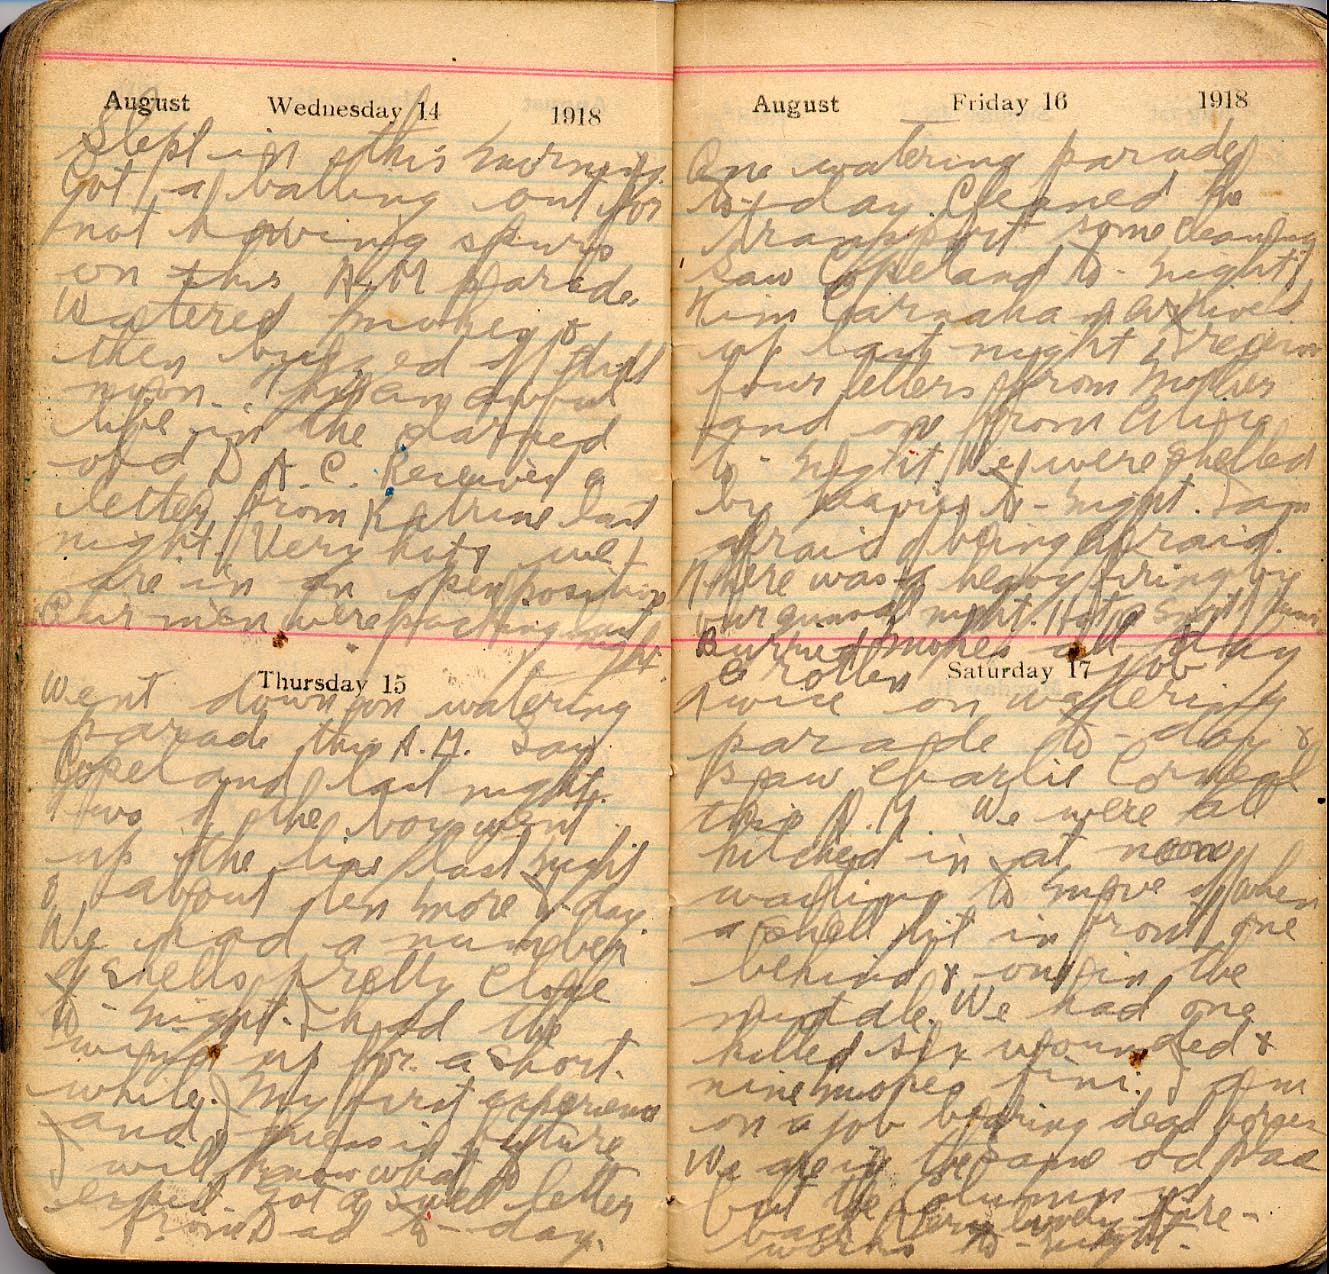 August Wednesday 14 1918
Slept in this morning.
Got a balling out for
not having spurs
on this A.M parade.
Watered mokes &
then buzzed off till
noon. This an awful
life in the darned
old D A. C. Received a
letter from Katrine last
night. Very hot, we
are in an open position
Our men were packing last
night.
Thursday 15
Went down on watering
parade this A.M. Saw
Copeland last night.
Two of the boys went
up the line last night
& about ten more to-day.
We had a number
of shells pretty close
to-night. I had the
wind up for a short
while. My first experience
and I guess in future
I will know what to
expect. Got a swell letter
from Dad to-day.
August Friday 16 1918
One watering parade
to-day. Cleaned the
transport some cleaning
Saw Copeland to-night
Him Carnahan arrived
up last night. I
four letters from Mother
and one from
to-night. We were shelled
by heavies to-night. I am
afraid of being afraid.
There was a heavy firing by
our guns all night. Hot
Burried mokes all day
a rotten job
Saturday 17
Twice on watering
parade to-day &
saw Charlie Corneal
this A.M. We were all
hitched in at noon
waiting to move off when
a shell hit in front one
behind & one in the
middle. We had one
killed six wounded &
nine mokes fini. I am
on a job burying dead horses
We are in the same old place
but the column is
back. Very lively fire-
works to-night.